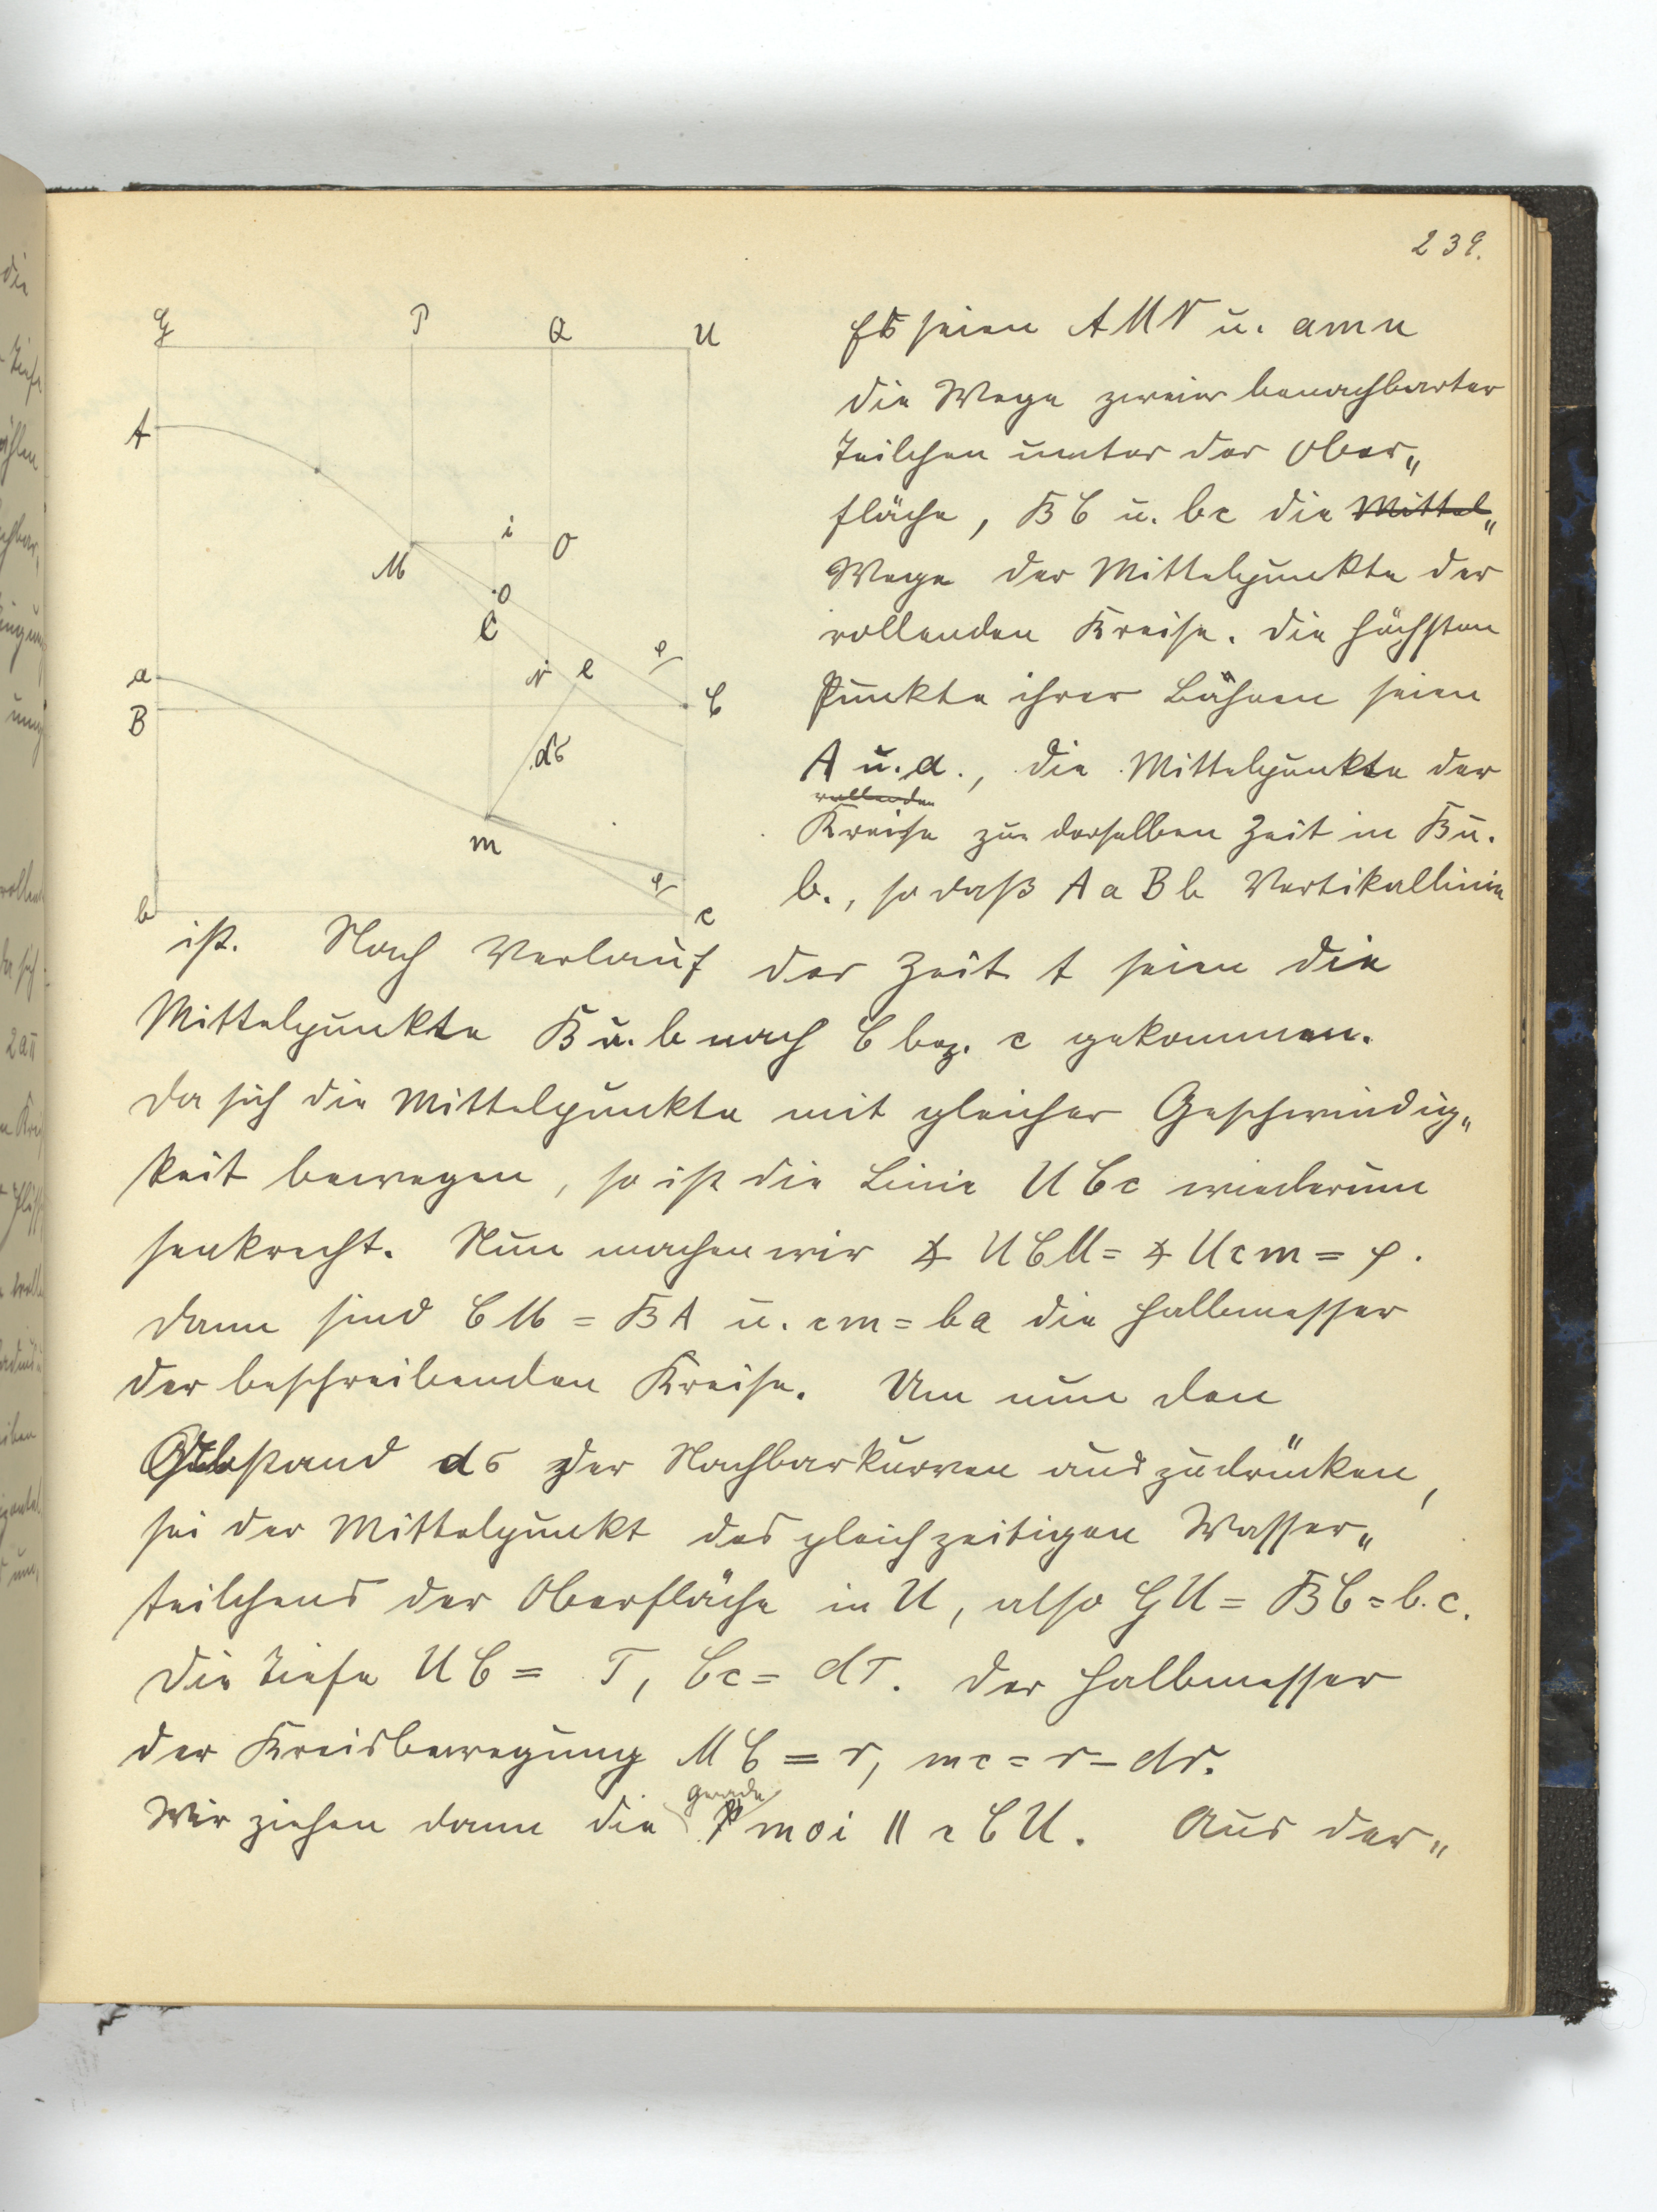 239.
G P Q U
A
M i O
o
C
N e φ
a C
B
dσ
m
φ
b c
Es seien AMN u. amn
die Wege zweier benachbarter
Teilchen unter der Ober„
fläche, BC u. bc die Mittel„
Wege der Mittelpunkte der
rollenden Kreise. Die höchsten
Punkte ihrer Bahnen seien
A u. a., die Mittelpunkte der
rollenden
Kreise zur derselben Zeit in B u.
b., so daß A a B b Vertikallinie
ist. Nach Verlauf der Zeit t seien die
Mittelpunkte B u. b nach C bez. c gekommen.
Da sich die Mittelpunkte mit gleicher Geschwindig„
keit bewegen, so ist die Linie U C c wiederum
senkrecht. Nun machen wir ∡ UCM = ∡ Ucm = φ.
Dann sind CM = BA u. cm = ba die Halbmesser
der beschreibenden Kreise. Um nun den
Abstand dσ der Nachbarkurven auszudrücken,
sei der Mittelpunkt des gleichzeitigen Wasser„
teilchens der Oberfläche in U, also GU = BC = b.c.
Die Tiefe UC = T, Cc = dT. Der Halbmesser
der Kreisbewegung MC = r, mc = r – dr.
gerade
Wir ziehen dann die moi || c C U. Aus der„